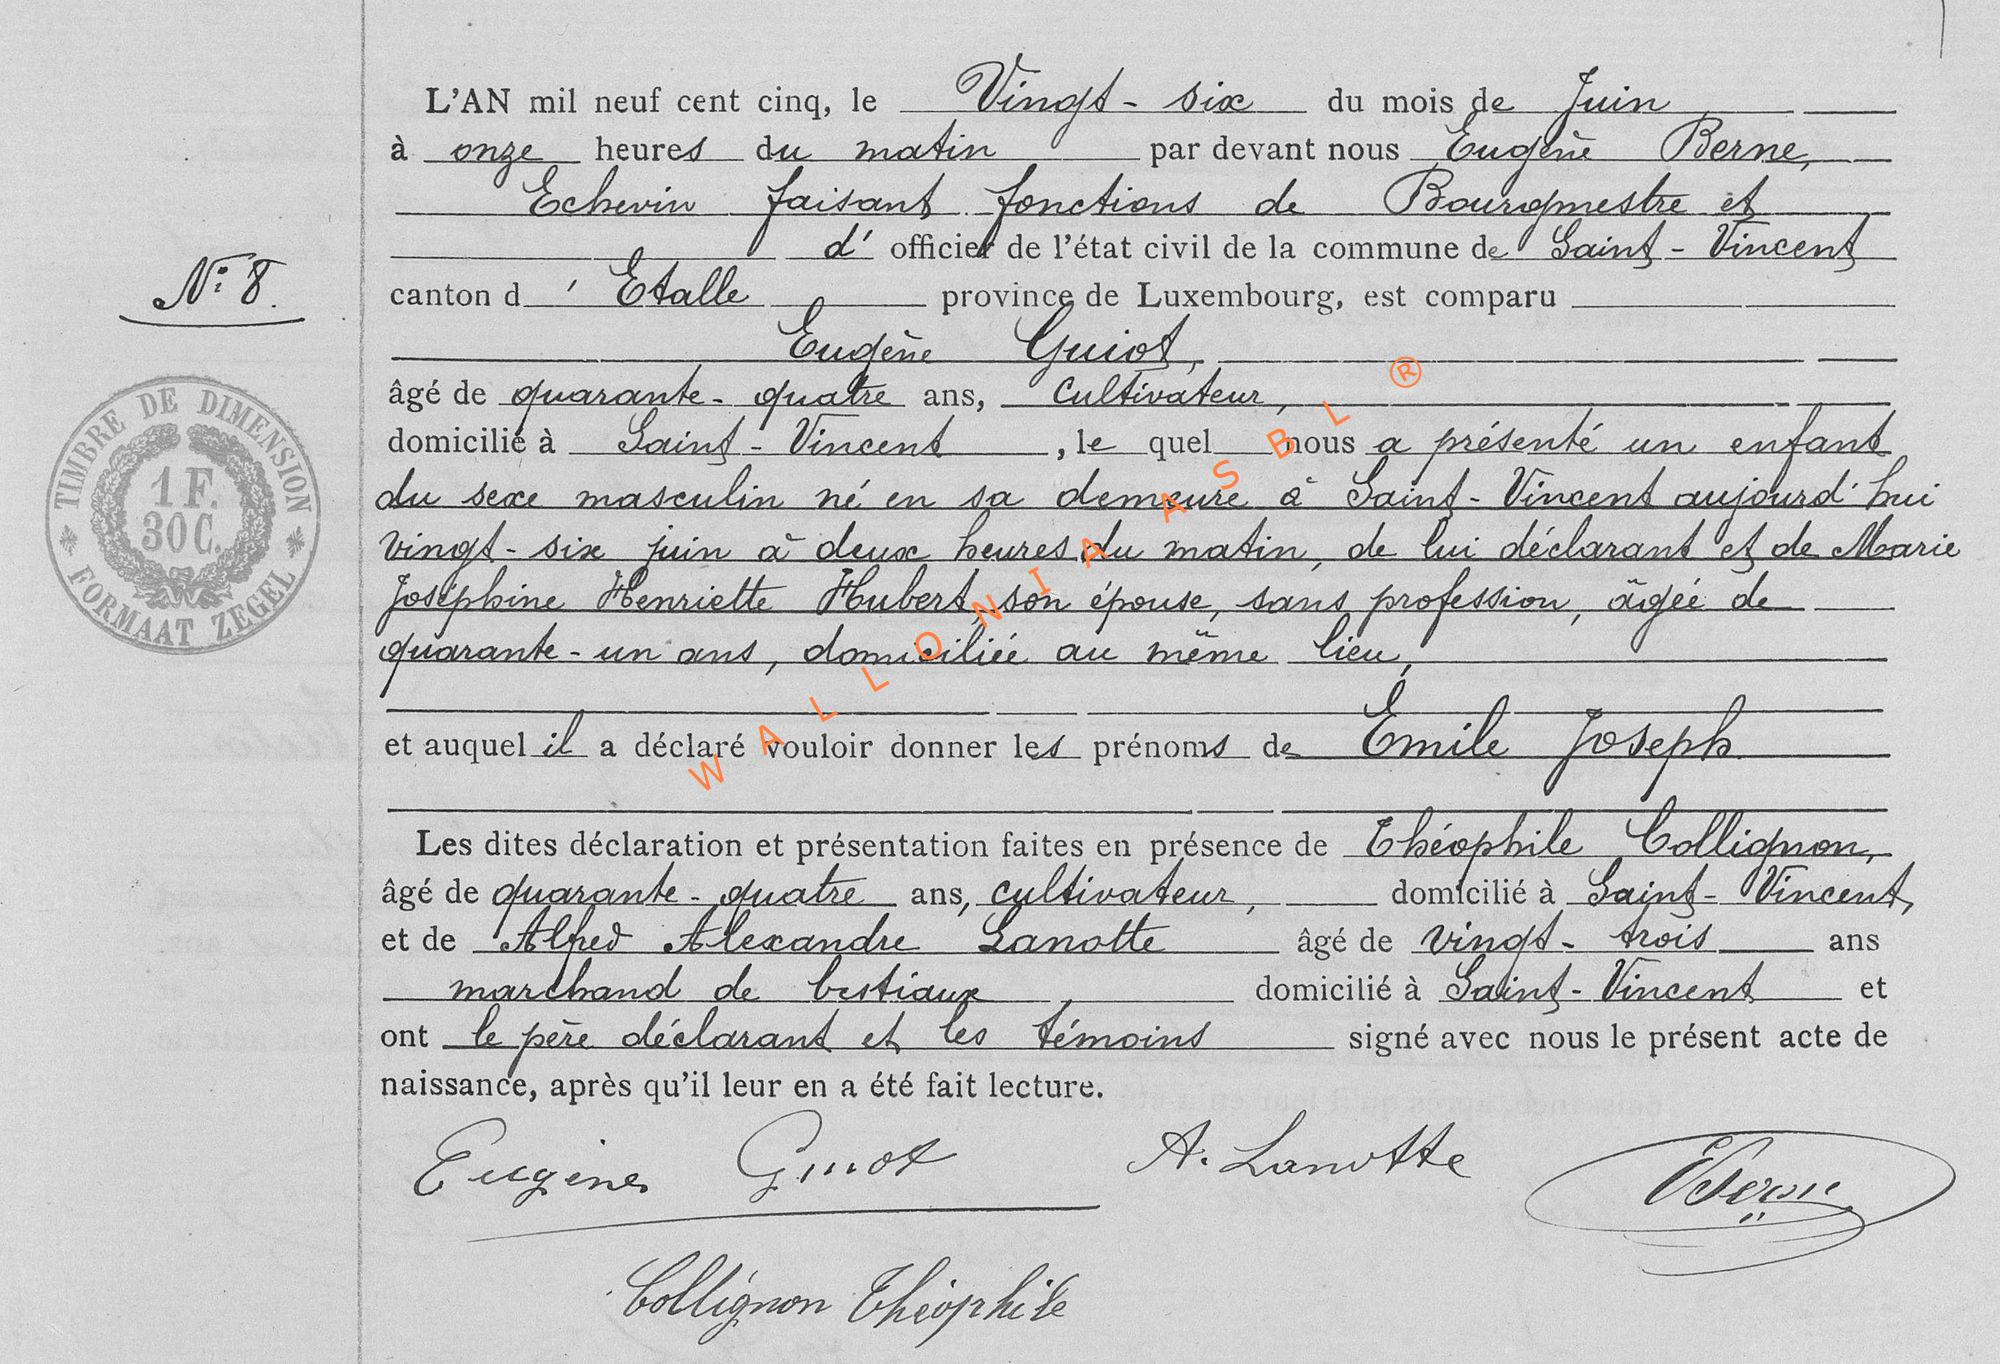 L'AN mil neuf cent cinq, le Vingt-six du mois de Juin
à onze heures du matin par devant nous Eugène Berne,
Echevin faisant fonctions de Bourgmestre et
d' officier de l'état civil de la commune de Saint-Vincent
N° 8.
canton d'Etalle province de Luxembourg, est comparu
Eugène Guiot,
âgé de quarante-quatre ans, cultivateur,
domicilié à Saint-Vincent, le quel nous a présenté un enfant
du sexe masculin né en sa demeure à Saint-Vincent aujourd'hui
vingt-six juin à deux heures du matin, de lui déclarant et de Marie
Joséphine Henriette Hubert, son épouse, sans profession, âgée de
quarante-un ans, domiciliée au même lieu,
et auquel il a déclaré vouloir donner les prénoms de Émile Joseph.
Les dites déclaration et présentation faites en présence de Théophile Collignon,
âgé de quarante-quatre ans, cultivateur, domicilié à Saint-Vincent,
et de Alfred Alexandre Lanotte âgé de vingt-trois ans
marchand de bestiaux, domicilié à Saint-Vincent et
ont le père déclarant et les témoins signé avec nous le présent acte de
naissance, après qu'il leur en a été fait lecture.
Eugène Guiot A. Lanotte EBerne
Collignon Théophile
TIMBRE DE DIMENSION
1 F.
30 C.
FORMAAT ZEGEL
WALLONIA ASBL ®